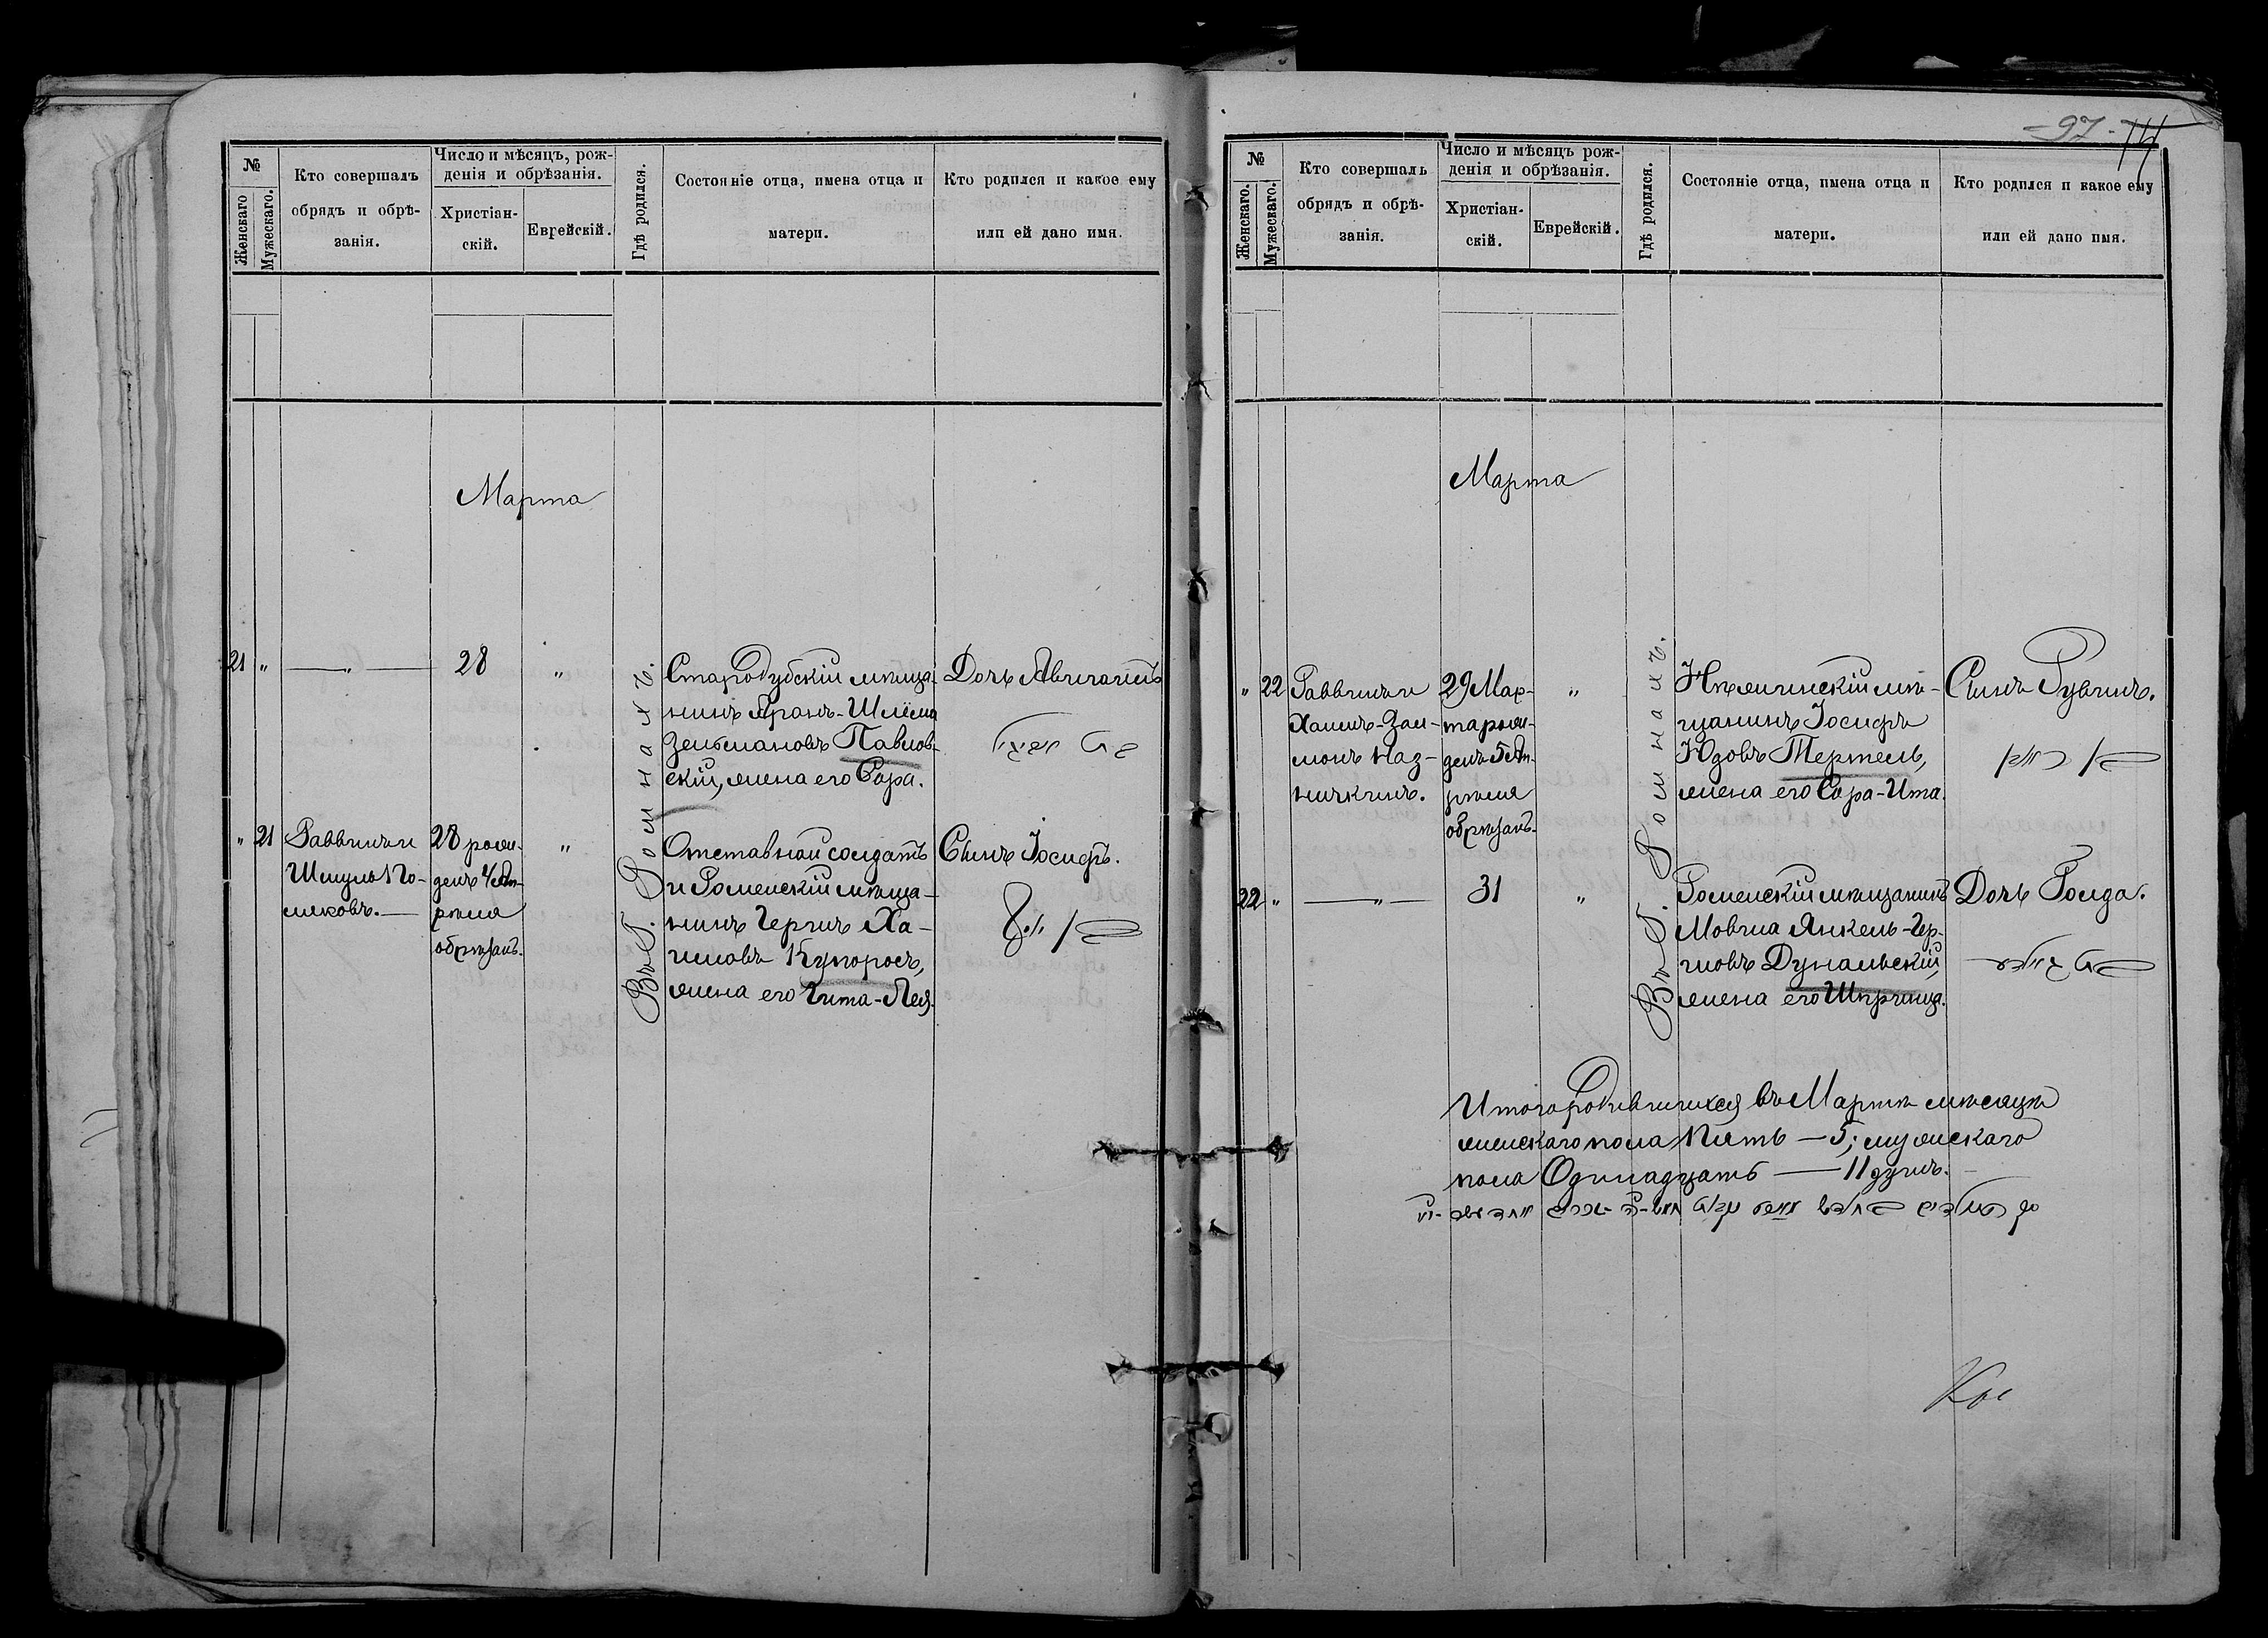 №
Женскаго
Мужескаго.
Кто совершалъ
обрядъ и обрѣ-
занія.
Число и мѣсяцъ, рож-
денія и обрѣзанія.
Христіан-
скій.
Еврейскій.
Гдѣ родился.
Состояніе отца, имена отца и
матери.
Кто родился и какое ему
или ей дано имя.
Марта
21 " — " — 28 "
Стародубскій мѣща-
нинъ Аронъ-Шлёма
Зельмановъ Павлов-
скій, жена его Сора.
Дочь Авигаилъ
" 21
Раввинъ и
Шмуль По-
ляковъ. —
28 рож-
денъ 4 Ап-
рѣля
обрѣзанъ.
"
Въ Г. Ромнахъ.
Отставной солдатъ
и Роменскій мѣща-
нинъ Герцъ Ха-
имовъ Купоросъ,
жена его Гита-Лея.
Сынъ Іосифъ.
97 - 74
№
Женскаго.
Мужескаго.
Кто совершалъ
обрядъ и обрѣ-
занія.
Число и мѣсяцъ рож-
денія и обрѣзанія.
Христіан-
скій.
Еврейскій.
Гдѣ родился.
Состояніе отца, имена отца и
матери.
Кто родился и какое ему
или ей дано имя.
Марта
" 22
Раввинъ и
Хаимъ-Зал-
монъ Наз-
29 Мар-
та рож-
денъ 5 Ап-
рѣля
обрѣзанъ.
"
Въ Г. Ромнахъ.
мѣ-
щанинъ Іосифъ
Юдовъ Тертель,
жена его Сора-Ита.
Сынъ Рувинъ.
22 " — " — 31 "
Роменскій мѣщанинъ
Мовша Янкель-Гер-
цовъ Дунаевскій,
жена его Шпринца.
Дочь Голда.
Итого родившихся въ Мартѣ мѣсяцѣ
женскаго пола Пять — 5; мужескаго
пола Одинадцать — 11 душъ.